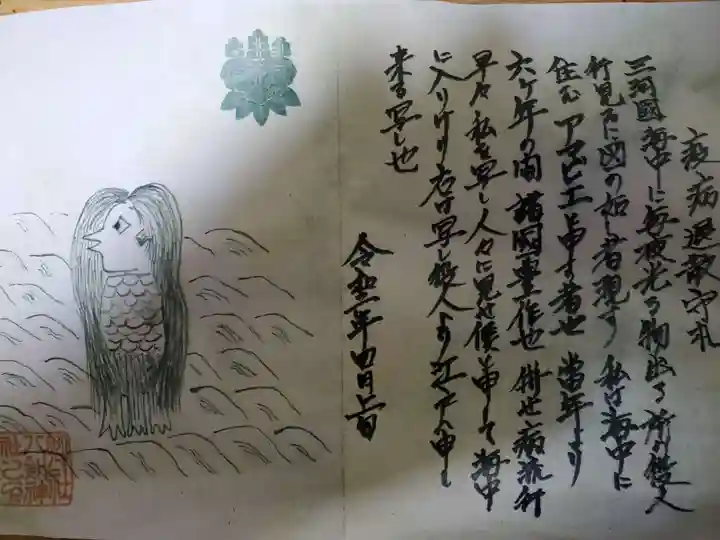 疫病退散守札
三河國海中に毎夜光る物出る所の役人
行見るに図の如し者現す 私は海中に
住むアマビヱと申す者也 當年より
六ケ年の間諸國豊作也 併せ病流行
早々私を写し人々に見せ候と申して海中
に入りけり 右は写し役人より江戸へ申し
来る写し也
令和二年四月